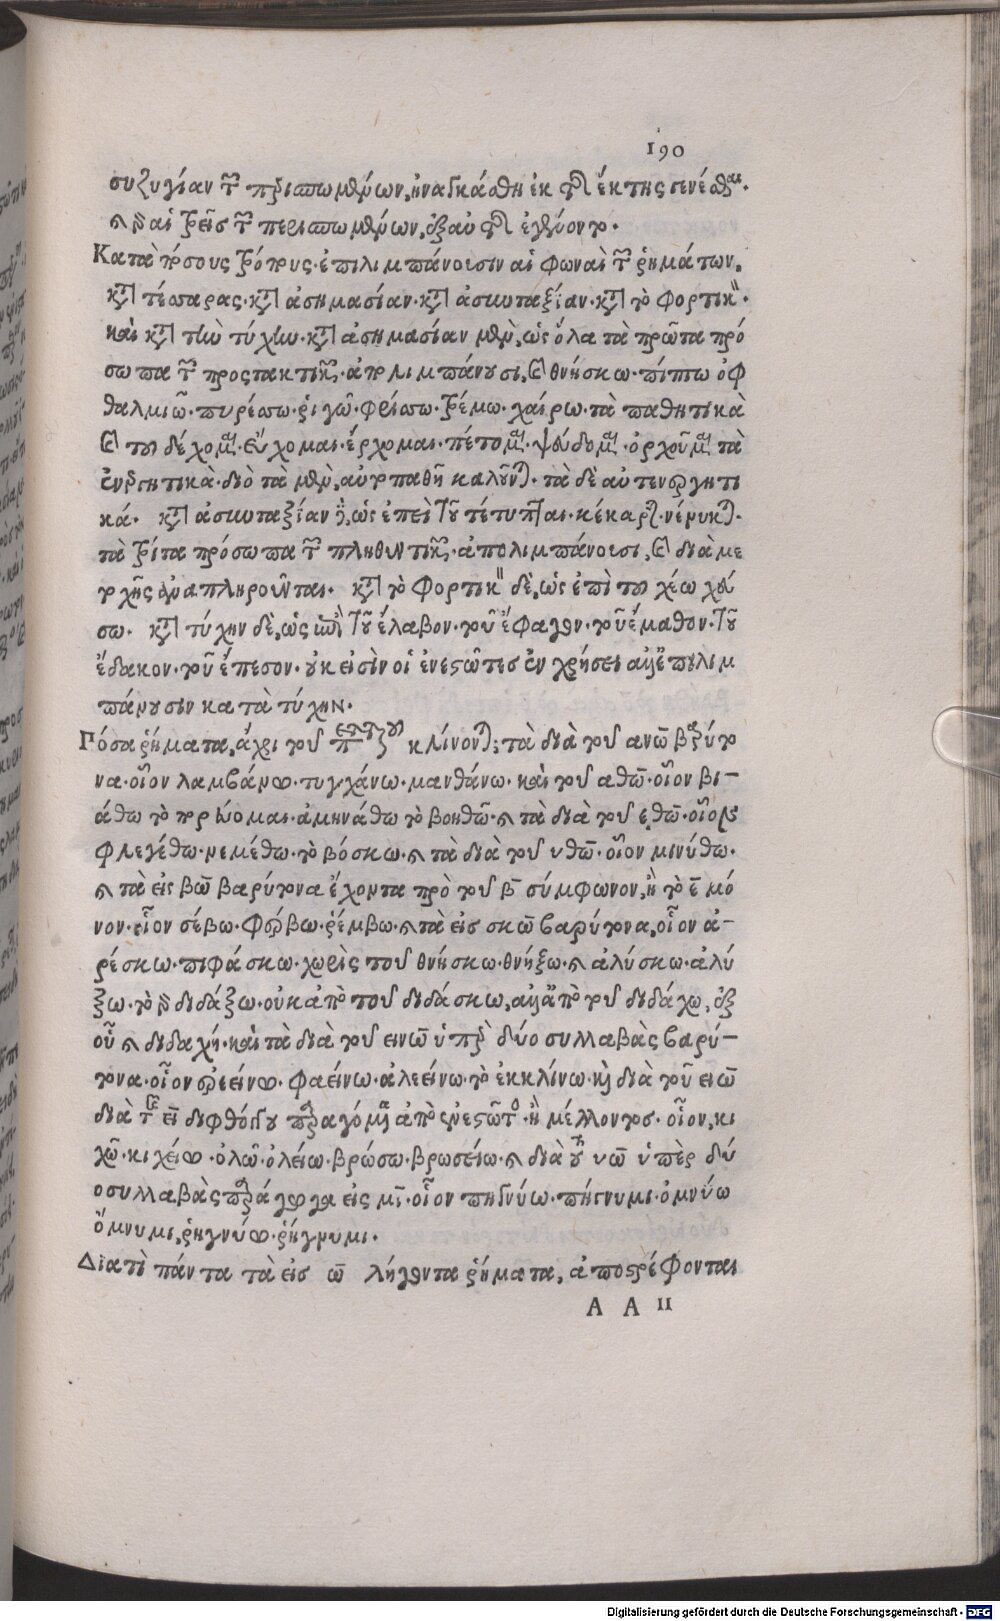 190
συζυγίαν τῶν περισπωμένων, ἠναγκάσθη ἐκ τῆς ἕκτης γενέσθαι.
καὶ γὰρ αἱ τρεῖς τῶν περισπωμένων, ἐξ αὐτῆς ἐγένοντο.
Κατὰ πόσους τρόπους ἐπιλιμπάνουσιν αἱ φωναὶ τῶν ῥημάτων,
κατὰ τέσσαρας. κατὰ ἀσημασίαν. κατὰ ἀσυνταξίαν. κατὰ τὸ φορτικόν.
καὶ κατὰ τὴν τύχην. κατὰ ἀσημασίαν μὲν, ὡς ὅλα τὰ πρῶτα πρό
σωπα τῶν προστακτικῶν. ἀπολιμπάνουσι, καὶ θνήσκω. πίπτω ὀφ
θαλμιῶ. πυρέσσω. ῥιγῶ. φρίσσω. τρέμω. χαίρω. τὰ παθητικὰ
καὶ τοῦ δέχομαι. εὔχομαι. ἔρχομαι. πέτομαι. ψεύδομαι. ὀρχοῦμαι τὰ
ἐνεργητικά. διὸ τὰ μὲν, αὐτοπαθῆ καλοῦνται. τὰ δὲ αὐτενεργητι
κά. κατὰ ἀσυνταξίαν δὲ, ὡς ἐπεὶ τοῦ τέτυπται. κέκαρται. νένυκται.
τὰ τρίτα πρόσωπα τῶν πληθυντικῶν. ἀπολιμπάνουσι, καὶ διὰ με
τοχῆς ἀναπληροῦνται. κατὰ τὸ φορτικὸν δὲ, ὡς ἐπὶ τοῦ χέω χεύ
σω. κατὰ τύχην δὲ, ὡς ἐπὶ τοῦ ἔλαβον. τοῦ ἔφαγον. τοῦ ἔμαθον. τοῦ
ἔδακον. τοῦ ἔπεσον. οὐκ εἰσὶν οἱ ἐνεστῶτες ἐν χρήσει ἀλλ' ἐπιλιμ
πάνουσιν κατὰ τύχην.
Πόσα ῥήματα, ἄχρι τοῦ παρατατικοῦ κλίνονται; τὰ διὰ τοῦ ανω βαρύτο
να. οἷον λαμβάνω. τυγχάνω. μανθάνω. καὶ τοῦ αθω. οἷον βι-
άθω τὸ πορεύομαι. ἀμηνάθω τὸ βοηθῶ. καὶ τὰ διὰ τοῦ εθω. οἷον
φλεγέθω. νεμέθω. τὸ βόσκω. καὶ τὰ διὰ τοῦ υθω. οἷον μινύθω.
καὶ τὰ εἰς βω βαρύτονα ἔχοντα πρὸ τοῦ β σύμφωνον, ἢ τὸ ε μό
νον. οἷον σέβω. φέρβω. ῥέμβω. καὶ τὰ εἰς σκω βαρύτονα, οἷον ἀ-
ρέσκω. πιφάσκω. χωρὶς τοῦ θνήσκω. θνήξω. καὶ ἀλύσκω. ἀλύ
ξω. τὸ γὰρ διδάξω. οὐκ ἀπὸ τοῦ διδάσκω, ἀλλ' ἀπὸ τοῦ διδάχω, ἐξ
οὗ καὶ διδαχή. καὶ τὰ διὰ τοῦ εινω ὑπὲρ δύο συλλαβὰς βαρύ-
τονα. οἷον ἐρεείνω. φαείνω. ἀλεείνω. τὸ ἐκκλίνω. καὶ διὰ τοῦ ειω
διὰ τῆς ει διφθόγγου παραγόμενα ἀπὸ ἐνεστῶτος. ἢ μέλλοντος. οἷον, κι
χῶ. κιχείω. ὀλῶ. ὀλείω. βρώσω. βρωσείω. καὶ διὰ τοῦ υω ὑπὲρ δύ
ο συλλαβὰς παράγωγα εἰς μι. οἷον πηγνύω. πήγνυμι. ὀμνύω
ὄμνυμι, ῥηγνύω. ῥήγνυμι.
Διατὶ πάντα τὰ εἰς ω λήγοντα ῥήματα, ἀποστρέφονται
A A II
Digitalisierung gefördert durch die Deutsche Forschungsgemeinschaft - DFG